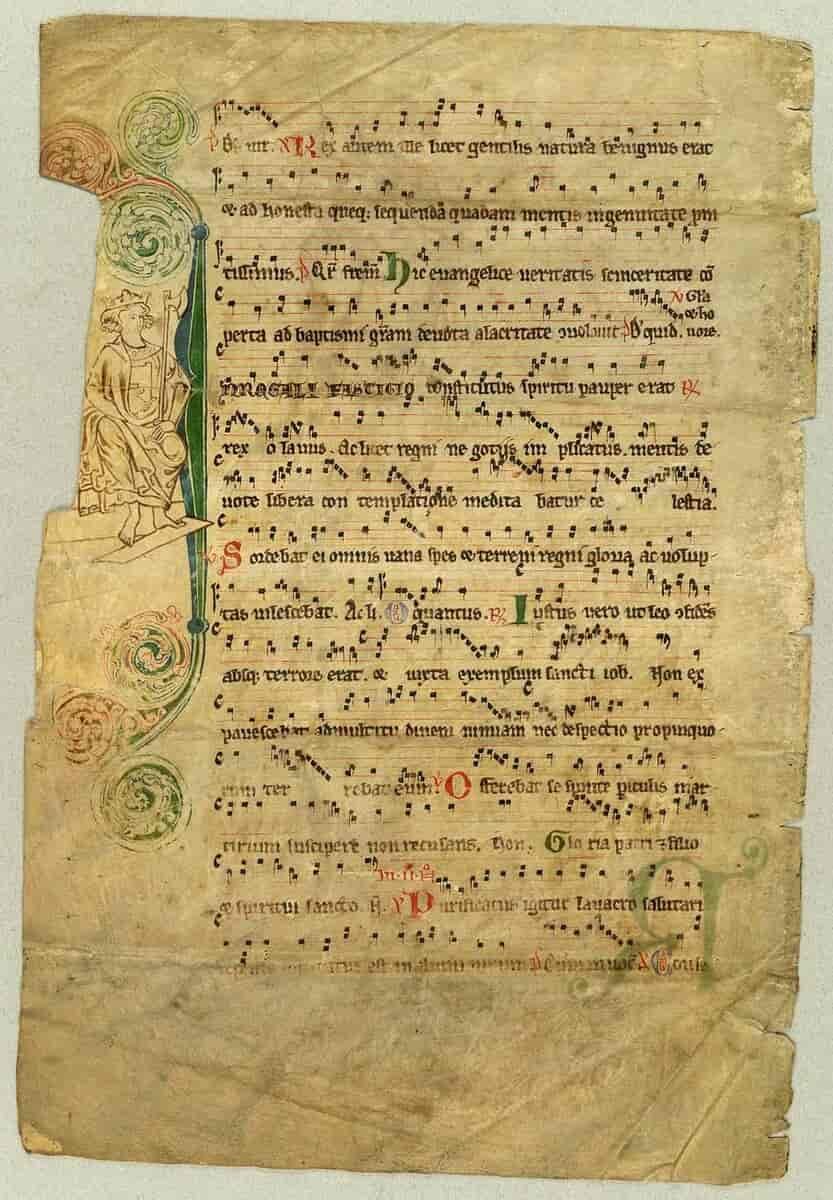 Rex autem ille licet gentilis natura benignus erat
& ad honesta queq; sequenda quadam mentis ingenuitate pm
tissimus. Hic evangelice veritatis sinceritate co
Gla
& ho
perta ad baptismi gram devota alacritate quid. nois.
REGALI FASTIGIO constitutus spiritu pauper erat R
rex olavus. Ac licet regni negotijs implicatus. mentis de
vote libera contemplatione meditabatur celestia.
Sordebat ei omnis vana spes & terreni regni gloria ac volup-
tas vilescebat. Ac li. quantus. R Iustus vero ut leo 9fidens
absq; terrore erat. & iuxta exemplum sancti iob. Non ex
pavescebat ad multitudinem nimiam nec despectio propinquo-
rum terrebat eum. V Offerebat se sponte periculis mar-
tirium suscipere non recusans. Non. Gloria patri & filio
& spiritui sancto. Purificatus igitur lavacro salutari
est in